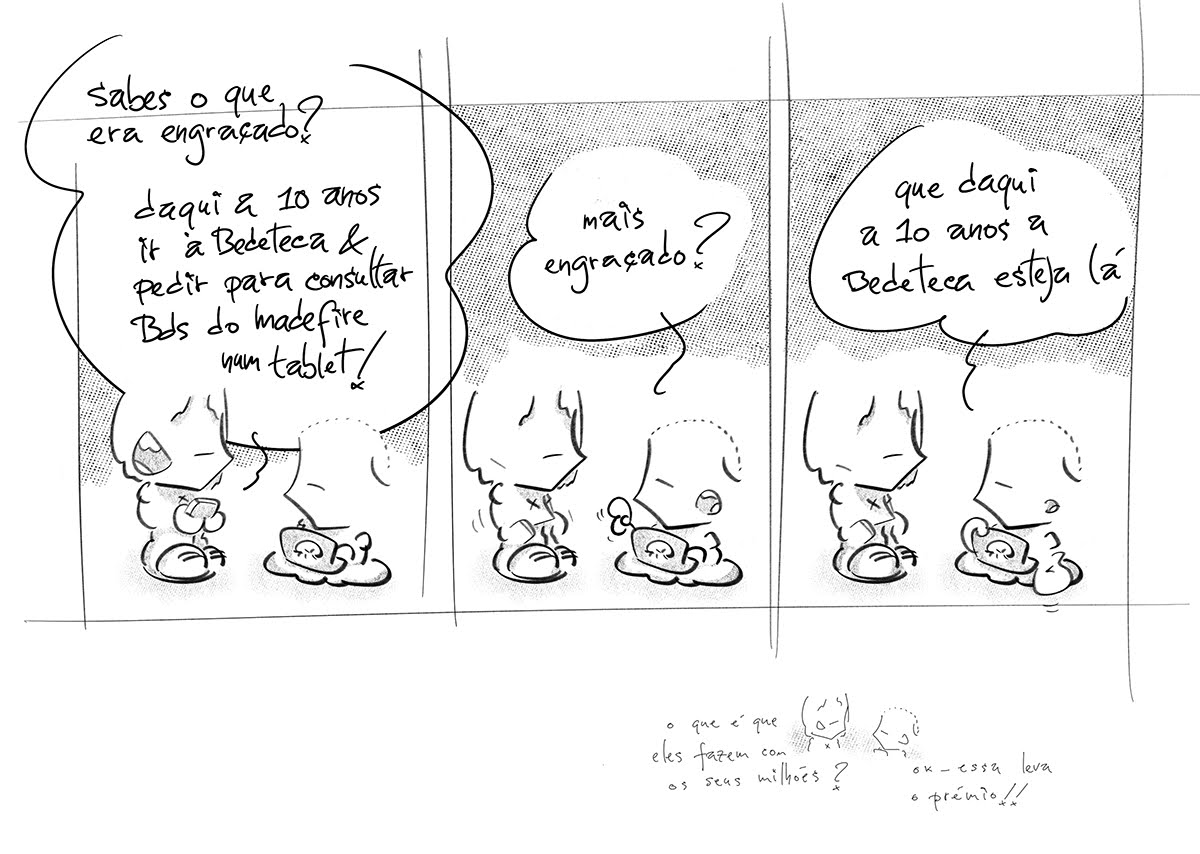 sabes o que
era engraçado?
daqui a 10 anos
ir à Bedeteca &
pedir para consultar
Bds do madefire
num tablet!
mais
engraçado?
que daqui
a 10 anos a
Bedeteca esteja lá
o que é que
eles fazem com
os seus milhões?
ok – essa leva
o prémio!!